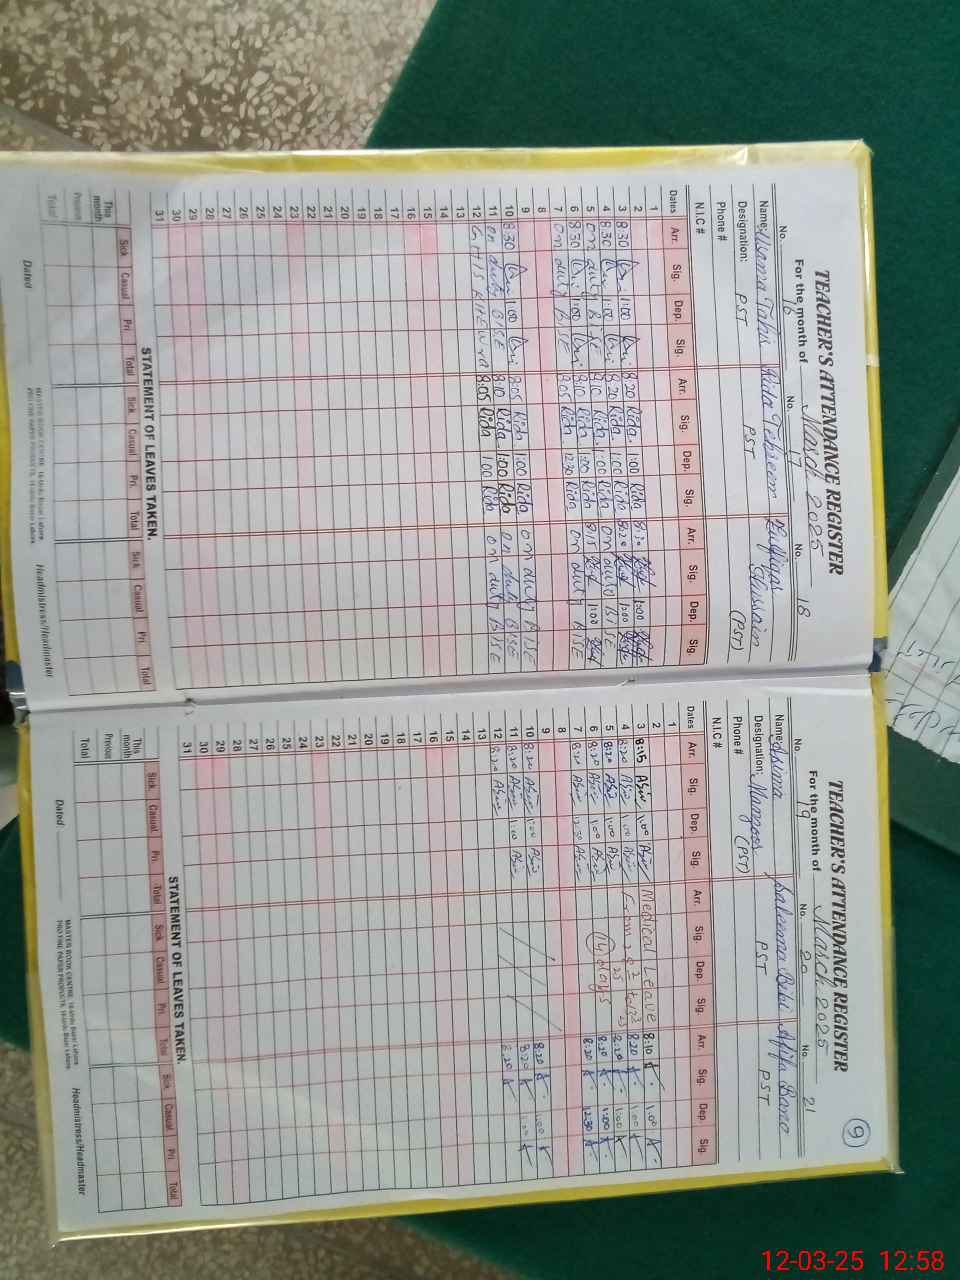 TEACHER'S ATTENDANCE REGISTER
For the month of March 2025
No. 16 No. 17 No. 18
Name: Usama Tahir Rida Tehseem Zulfiqar Hussain
Designation: PST PST (PST)
Phone #
N.I.C #
Dates Arr. Sig. Dep. Sig. Arr. Sig. Dep. Sig. Arr. Sig. Dep. Sig.
1
2
3 8:30 1:00 8:20 Rida 1:00 Rida 8:20 1:00
4 8:30 1:00 8:20 Rida 1:00 Rida on duty BISE
5 on duty BISE 8:10 Rida 1:00 Rida 8:15 1:00
6 8:30 1:00 8:10 Rida 1:00 Rida on duty BISE
7 on duty BISE 8:05 Rida 12:30 Rida
8
9
10 8:30 1:00 8:05 Rida 1:00 Rida on duty BISE
11 on duty BISE 8:10 Rida 1:00 Rida on duty BISE
12 8:05 Rida 1:00 Rida on duty BISE
13
14
15
16
17
18
19
20
21
22
23
24
25
26
27
28
29
30
31
STATEMENT OF LEAVES TAKEN.
Sick Casual Pri. Total Sick Casual Pri. Total Sick Casual Pri. Total
This month
Previous
Total
Dated
MASTER BOOK CENTRE
Headmistress/Headmaster
9
TEACHER'S ATTENDANCE REGISTER
For the month of March 2025
No. 19 No. 20 No. 21
Name: Asima Saleema Bibi Afifa Bano
Designation: Manzoor (PST) PST PST
Phone #
N.I.C #
Dates Arr. Sig. Dep. Sig. Arr. Sig. Dep. Sig. Arr. Sig. Dep. Sig.
1
2
3 8:15 1:00 Medical Leave 8:10 1:00
4 8:20 1:00 From 8:20 1:00
5 8:20 1:00 8:20 1:00
6 8:20 1:00 (14) days 8:20 1:00
7 8:20 12:30 8:20 12:30
8
9
10 8:20 1:00 8:20 1:00
11 8:20 1:00 8:20 1:00
12 8:20 8:20
13
14
15
16
17
18
19
20
21
22
23
24
25
26
27
28
29
30
31
STATEMENT OF LEAVES TAKEN.
Sick Casual Pri. Total Sick Casual Pri. Total Sick Casual Pri. Total
This month
Previous
Total
Dated
MASTER BOOK CENTRE
Headmistress/Headmaster
12-03-25 12:58